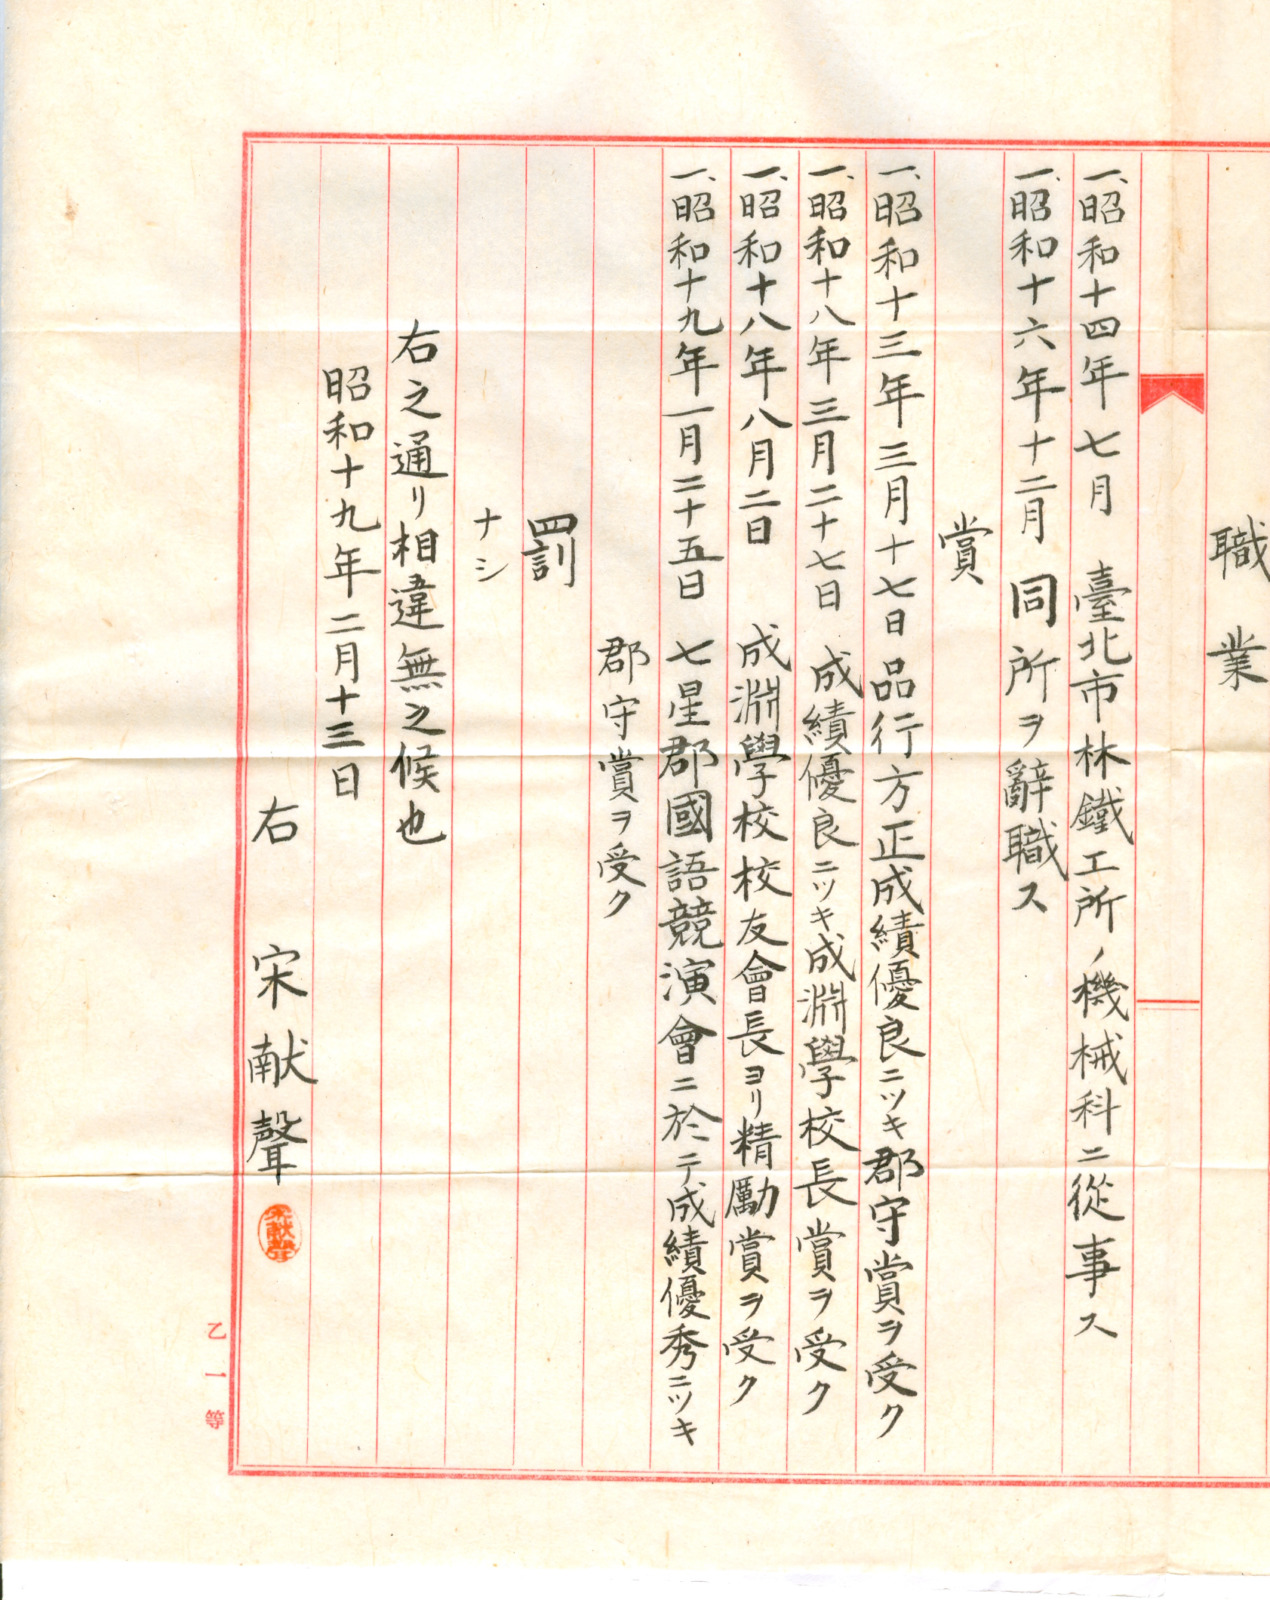 職業
一、昭和十四年七月 臺北市林鐵工所ノ機械科ニ從事ス
一、昭和十六年十二月 同所ヲ辭職ス
賞
一、昭和十三年三月十七日 品行方正成績優良ニツキ郡守賞ヲ受ク
一、昭和十八年三月二十七日 成績優良ニツキ成淵學校長賞ヲ受ク
一、昭和十八年八月二日 成淵學校校友會長ヨリ精勵賞ヲ受ク
一、昭和十九年一月二十五日 七星郡國語競演會ニ於テ成績優秀ニツキ
郡守賞ヲ受ク
罰
ナシ
右之通リ相違無之候也
昭和十九年二月十三日
右 宋献聲
宋献聲
乙一等